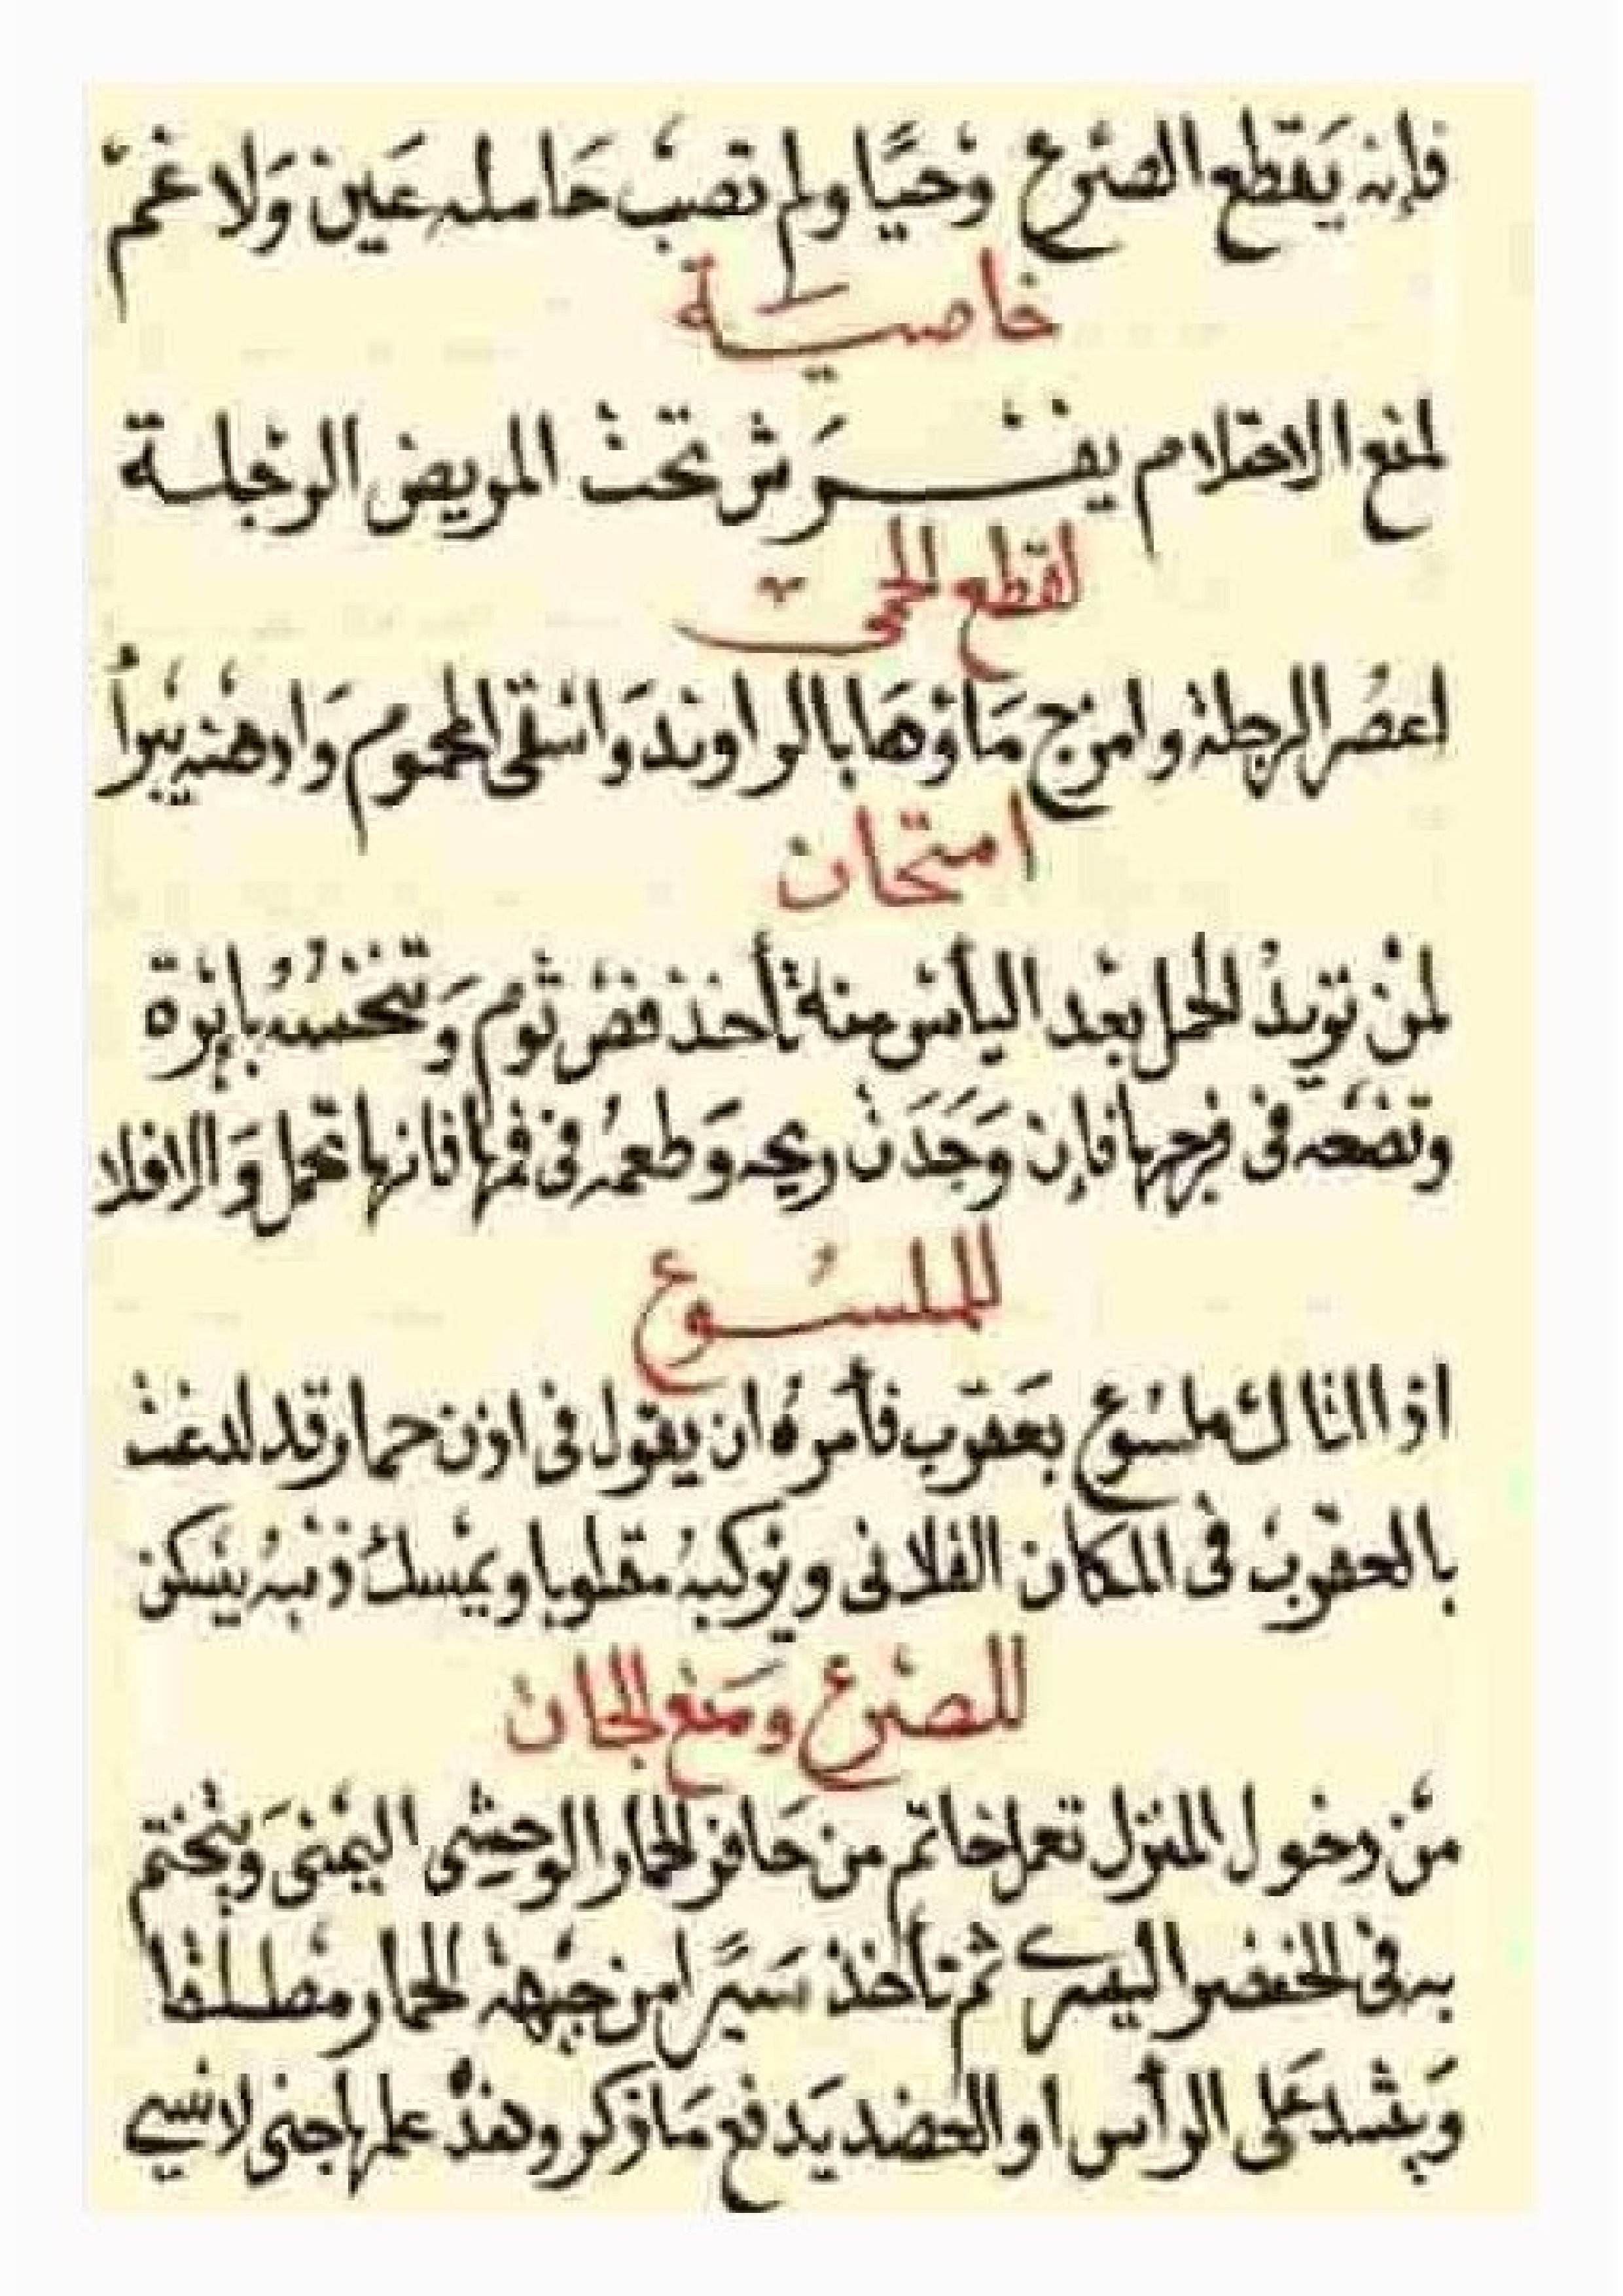 فإنه يَقطع الصرْع وَحيًّا ولم تصبْ حَامله عَين وَلا غمّ
خاصيّة
لمنع الاحتلام يفْرَش تحت المريض الرجلة
لقطع الحمى
اعصُر الرجلة وامزج مَاؤهَا بالراوند وَاسْقى المحموم وَادهنه يَبرأ
امتحان
لمنْ تريدُ الحمل بعْد اليأس منه تأخذ فصّ ثوم وَتنخسُه بإبْرة
وتضَعه فى فرجها فإن وَجَدَتْ ريحه وَطعمُه فى فمها فانها تحمل وَالا فلا
للملسُوع
اذا اتاك ملسُوع بعَقرب فأمرهُ ان يقول فى اذن حمار قد لدغت
بالعقرب فى المكان الفلانى ويركبهُ مقلوبا ويمسك ذنبهُ يسَكن
للصرْع ومَنع الجان
منْ دخول المنزل تعمل خاتم من حَافر الحمار الوحشى اليمنى وَيتختم
به فى الخنصر اليسرى ثم تأخذ سَيْرًا من جبْهة الحمار مطلقا
وَيشد عَلى الرأس او العضد يَدفع مَا ذكر وهذْ علمها جنى لانسي